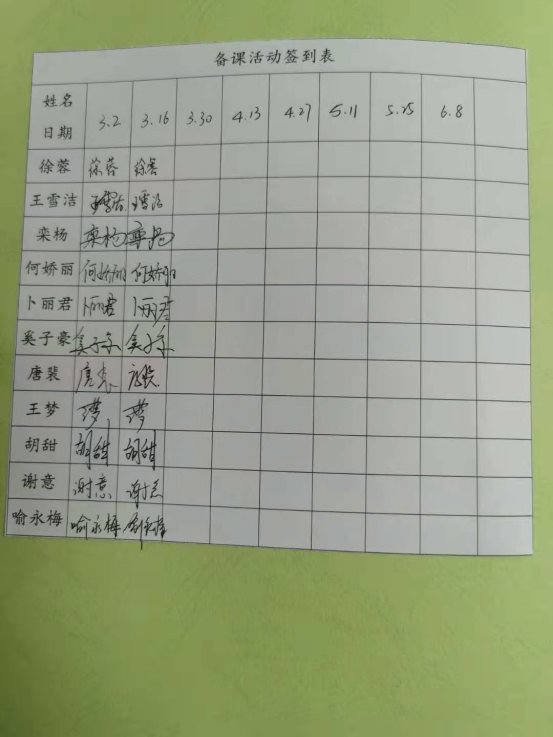 备课活动签到表
姓名
日期 3.2 3.16 3.30 4.13 4.27 5.11 5.25 6.8
徐蓉 徐蓉 徐蓉
王雪洁 王雪洁 王雪洁
栾杨 栾杨 栾杨
何娇丽 何娇丽 何娇丽
卜丽君 卜丽君 卜丽君
奚子豪 奚子豪 奚子豪
唐裴 唐裴 唐裴
王梦 王梦 王梦
胡甜 胡甜 胡甜
谢意 谢意 谢意
喻永梅 喻永梅 喻永梅